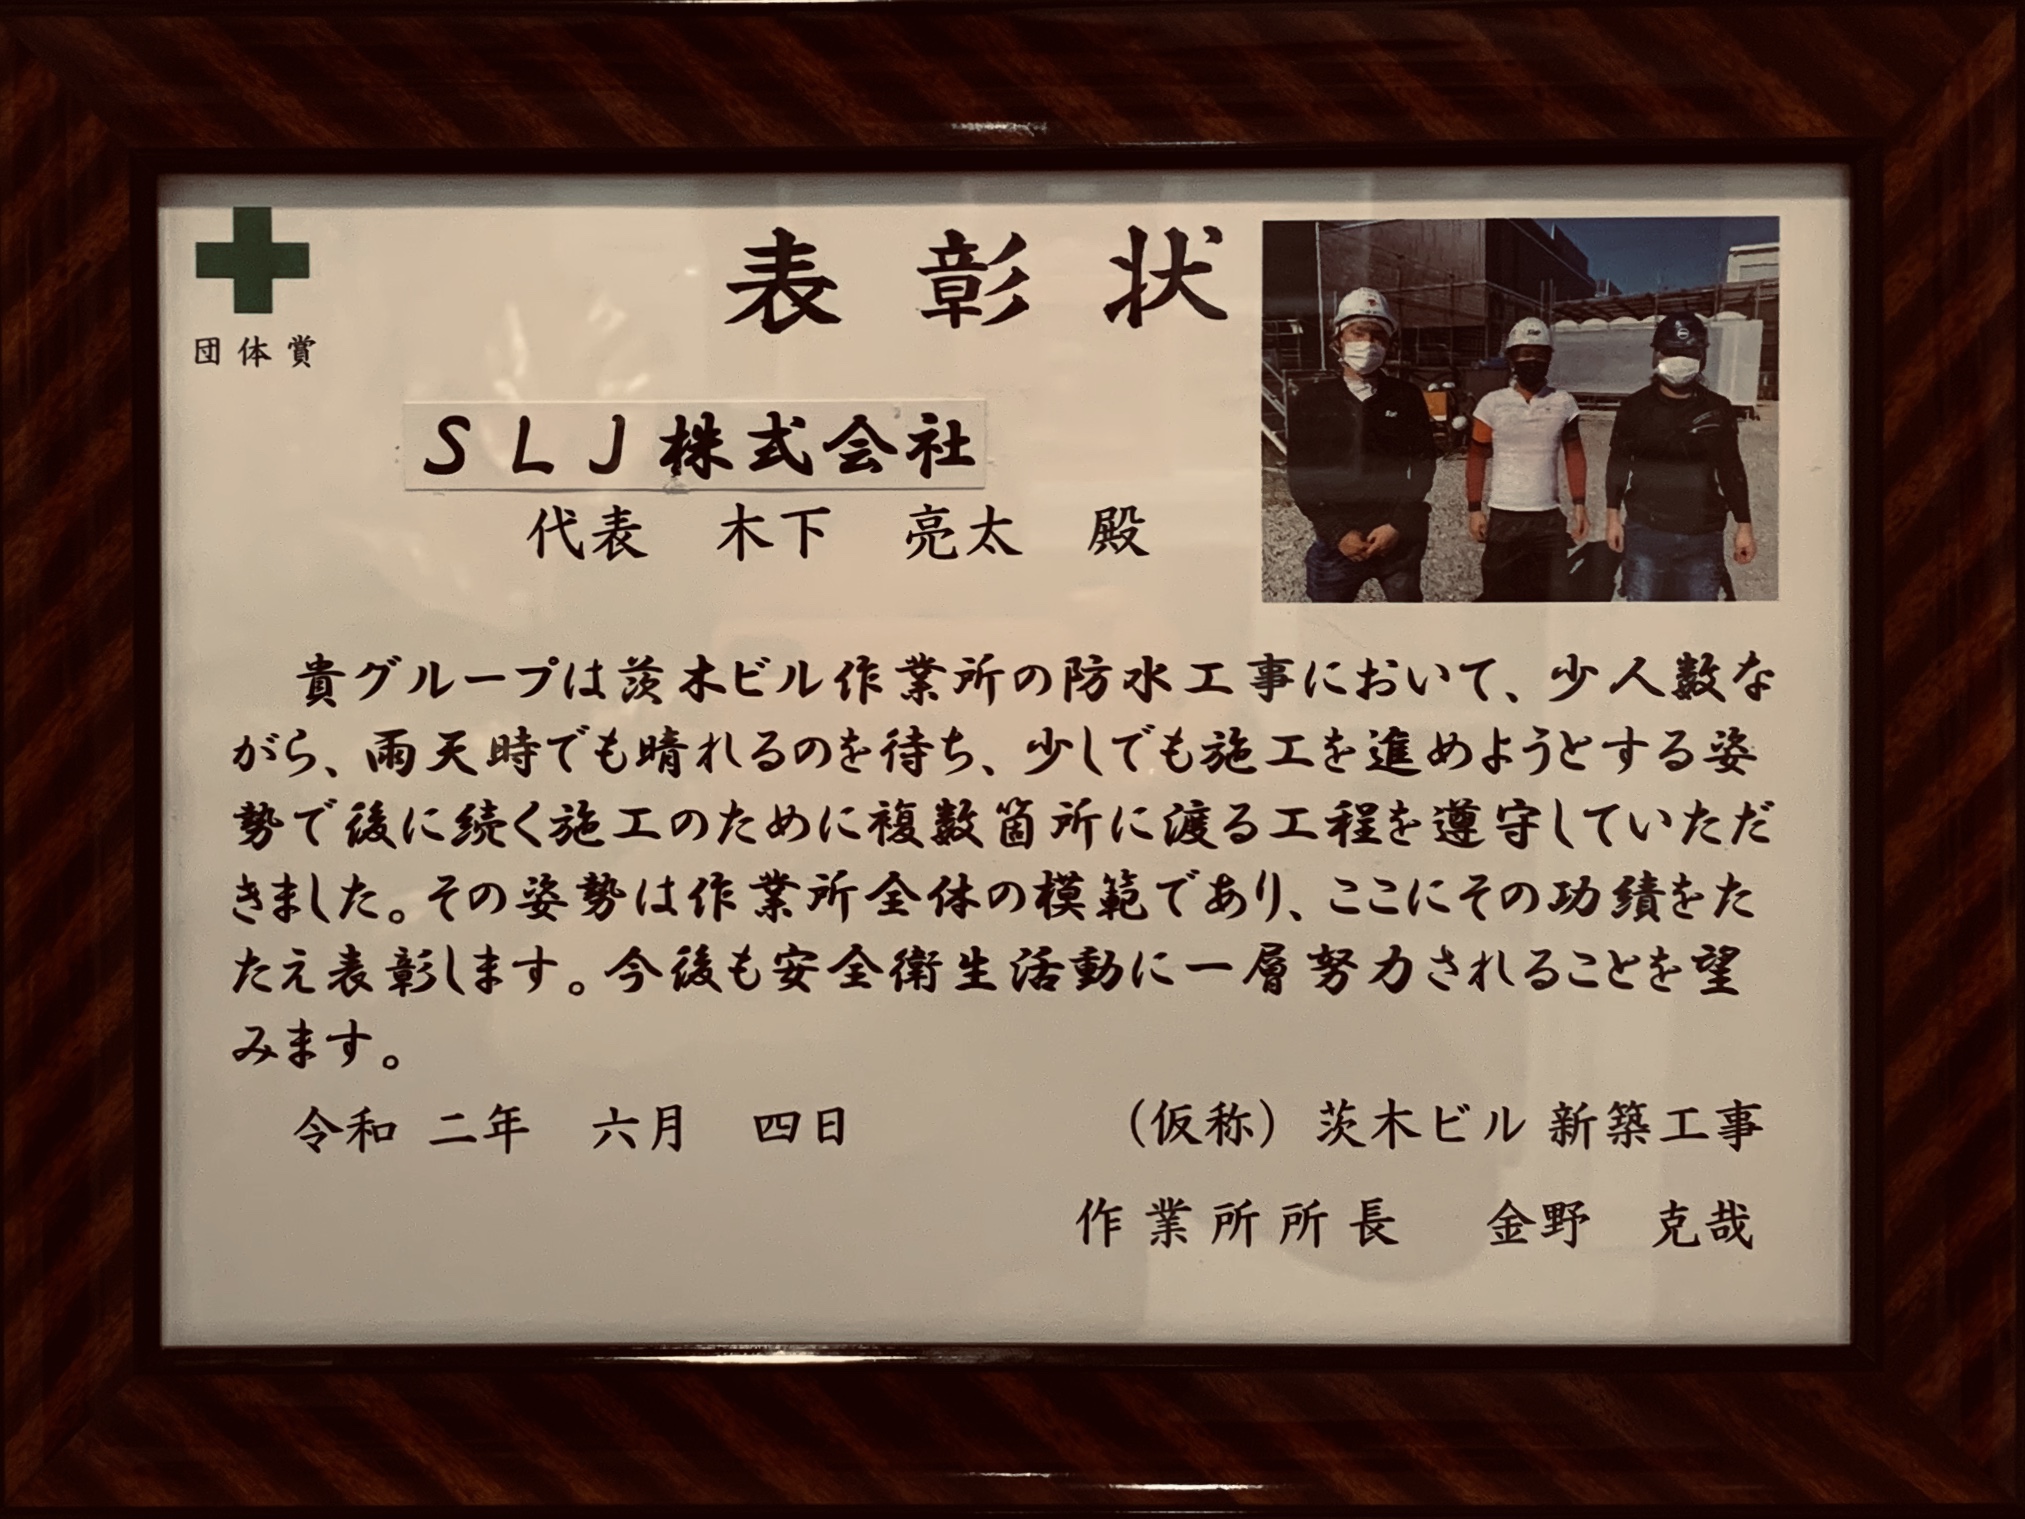 表彰状
団体賞
ＳＬＪ株式会社
代表　木下　亮太　殿
貴グループは茨木ビル作業所の防水工事において、少人数な
がら、雨天時でも晴れるのを待ち、少しでも施工を進めようとする姿
勢で後に続く施工のために複数箇所に渡る工程を遵守していただ
きました。その姿勢は作業所全体の模範であり、ここにその功績をた
たえ表彰します。今後も安全衛生活動に一層努力されることを望
みます。
令和 二年　六月　四日
（仮称）茨木ビル 新築工事
作業所所長　金野　克哉